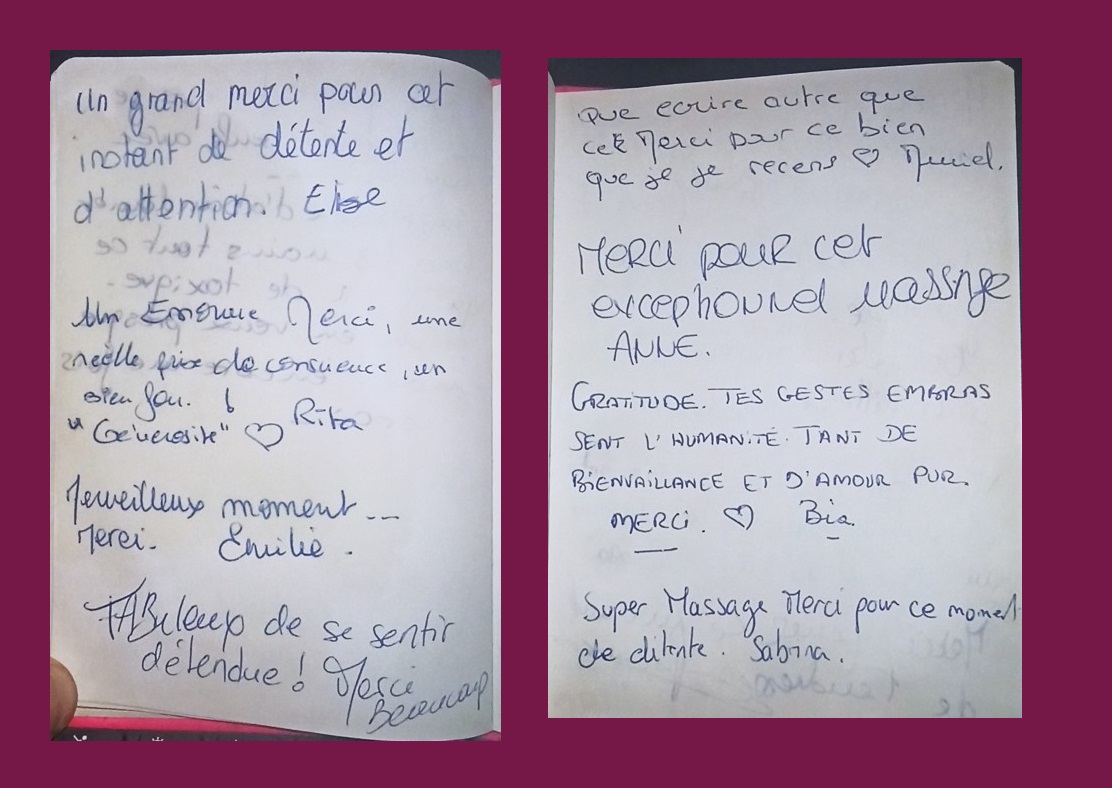 Un grand merci pour cet
instant de détente et
d'attention. Elise
Un Enorme Merci, une
réelle prise de conscience, un
bien fou. !
"Générosité" ♡ Rita
Merveilleux moment...
Merci. Emilie.
FABuleux de se sentir
détendue ! Merci
Beaucoup
Que ecrire autre que
cet Merci pour ce bien
que je je recens ♡ Muriel.
Merci pour cet
exceptionnel massage
ANNE.
GRATITUDE. TES GESTES EMBRAS
SENT L'HUMANITÉ. TANT DE
BIENVAILLANCE ET D'AMOUR PUR.
MERCI. ♡ Bia
Super Massage Merci pour ce moment
de ditente. Sabrina.